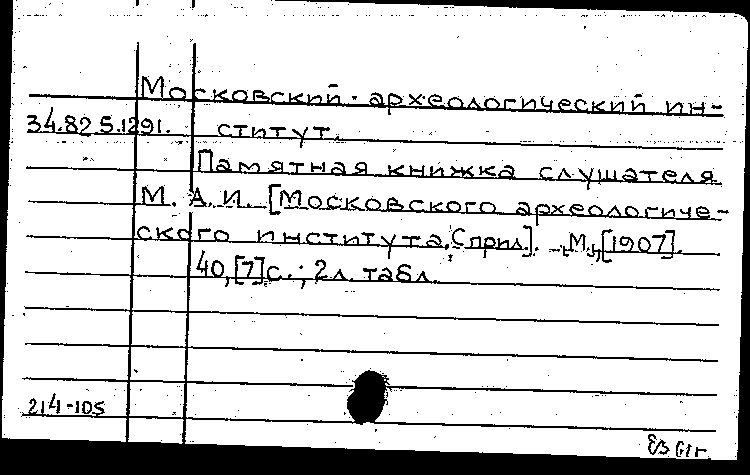 Московский археологический ин-
34.82 5.1291. ститут.
Памятная книжка слушателя
М. А. И. [Московского археологиче-
ского института. С прил.]. М., [1907].
40, [7] с.; 2 л. табл.
214-105
61 г.